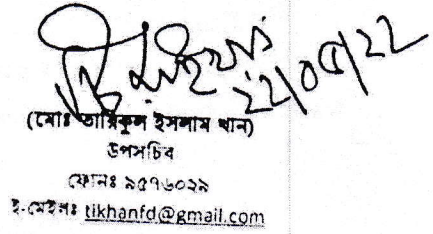 ২২/০৫/২২
(মোঃ তারিকুল ইসলাম খান)
উপসচিব
ফোনঃ ৯৫৭৬০২৯
ই-মেইলঃ tikhanfd@gmail.com